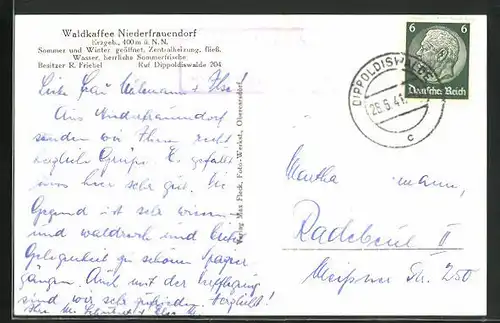 Waldkaffee Niederfrauendorf
Erzgeb., 400 m ü. N. N.
Sommer und Winter geöffnet, Zentralheizung, fließ.
Wasser, herrliche Sommerfrische
Besitzer R. Friebel Ruf Dippoldiswalde 204
Liebe Frau
Aus Niederfrauendorf
senden wir Ihnen recht
herzliche Grüße. Es gefällt
uns hier sehr gut. Die
Gegend ist sehr
und waldreich und
Gelegenheit zu schönen Spazier
gängen. Auch mit der Verpflegung
sind wir sehr zufrieden.
Verlag Max Fleck, Foto-Werkst.
6 6
Deutsches Reich
DIPPOLDISWALDE
26.6.41
c
Martha mann,
Radebeul II
Meißner Str. 250